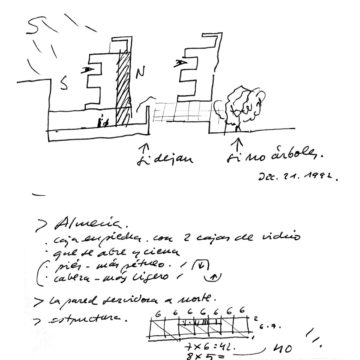 S
S
N
Si dejan
Si no árboles.
Dec. 21. 1992.
> Almería.
· caja en piedra con 2 cajas de vidrio
· que se abre y cierra
· piés - más pétreo.
· cabeza - más ligero
> la pared servidora a norte.
> estructura.
6 6 6 6 6 6 6
7x6=42.
8x5=
NO